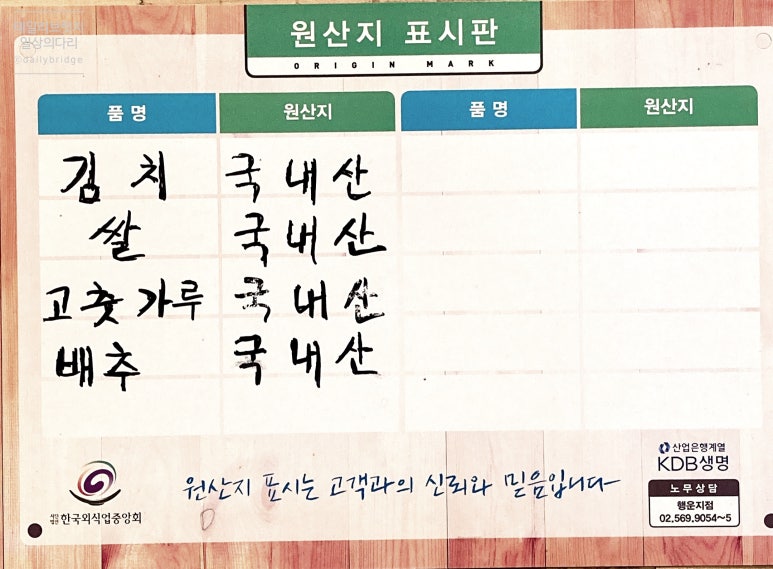 일상의다리
@dailybridge
원산지 표시판
ORIGIN MARK
품명 원산지 품명 원산지
김치 국내산
쌀 국내산
고춧가루 국내산
배추 국내산
원산지 표시는 고객과의 신뢰와 믿음입니다
한국외식업중앙회
산업은행계열
KDB생명
노무상담
행운지점
02.569.9054~5